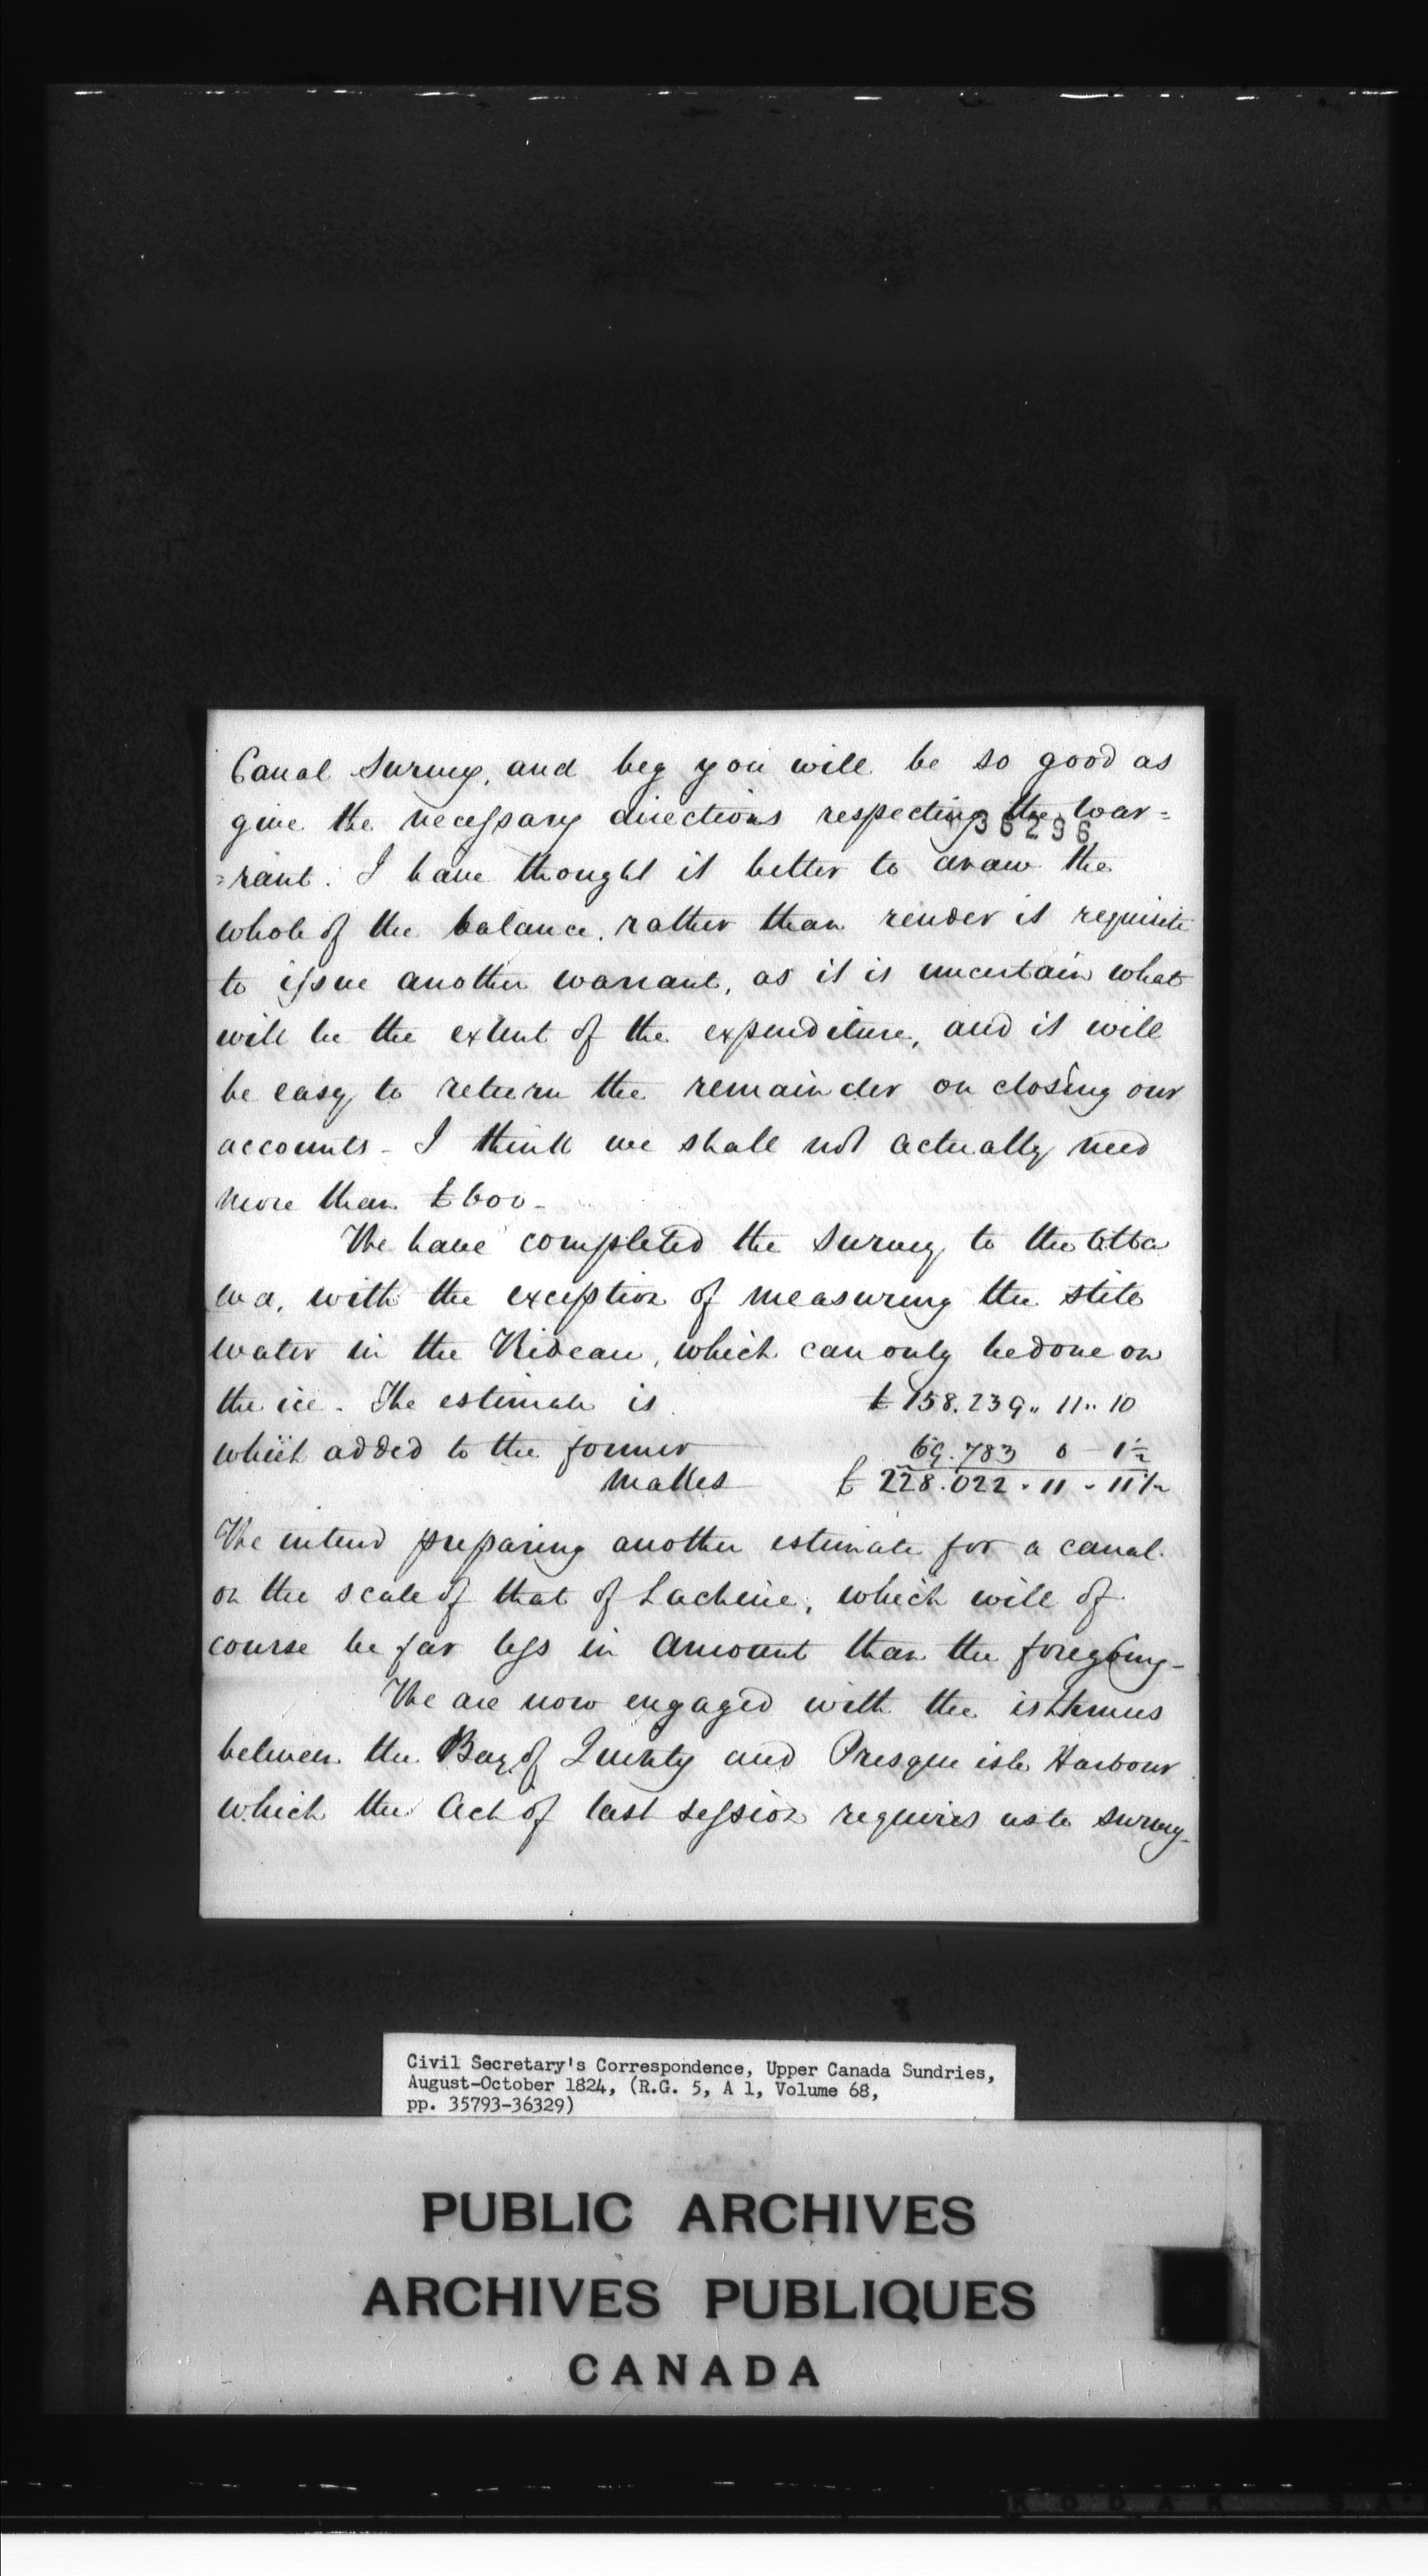 Canal Survey, and beg you will be so good as
give the necessary directions respecting the war=
36296
=rant. I have thought it better to draw the
whole of the balance, rather than render it requisite
to issue another warrant, as it is uncertain what
will be the extent of the expenditure, and it will
be easy to return the remainder on closing our
accounts - I think we shall not actually need
more than £600 -
We have completed the survey to the Otta
wa, with the exception of measuring the still
water in the Rideau, which can only be done on
the ice. The estimate is £158.239,, 11,, 10
which added to the former 69.783 0 - 1½
makes £ 228.022 - 11 - 11½
We intend preparing another estimate for a canal
on the scale of that of Lachine, which will of
course be far less in amount than the foregoing -
We are now engaged with the isthmus
between the Bay of Quinty and Presque isle Harbour
which the Act of last session requires us to survey -
Civil Secretary's Correspondence, Upper Canada Sundries,
August-October 1824, (R.G. 5, A 1, Volume 68,
pp. 35793-36329)
PUBLIC ARCHIVES
ARCHIVES PUBLIQUES
CANADA